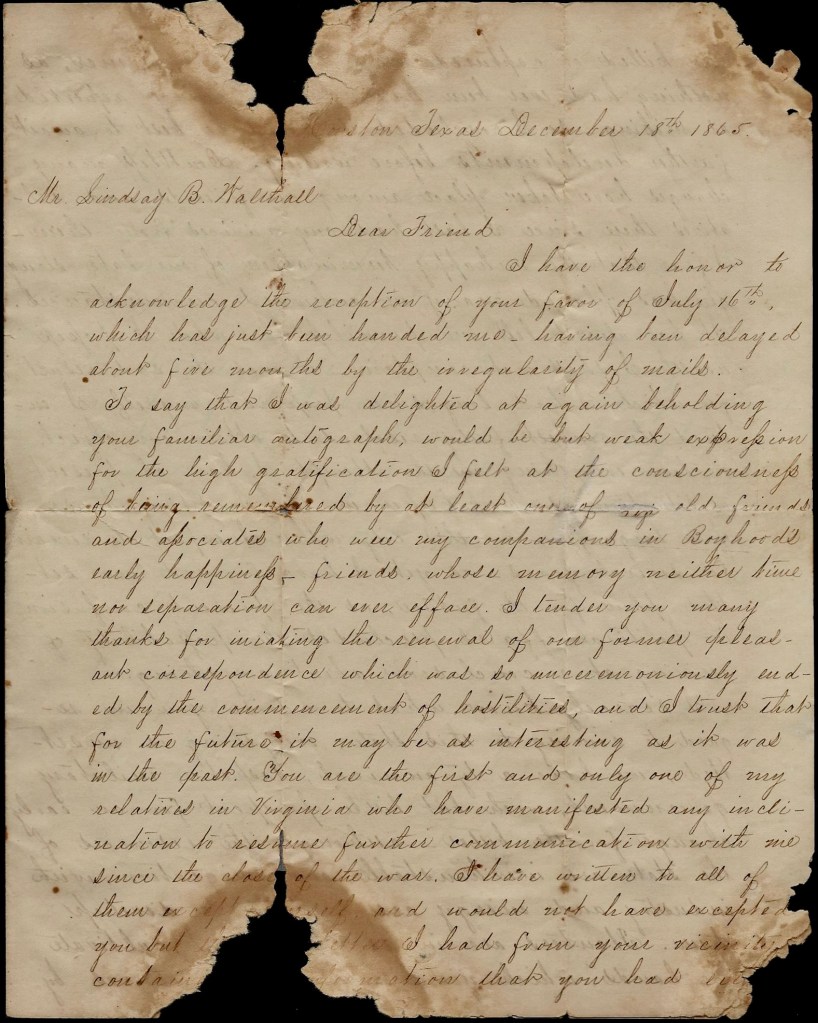 Houston Texas December 18th 1865.
Mr Lindsay B. Walthall
Dear Friend
I have the honor to
acknowledge the reception of your favor of July 16th,
which has just been handed me - having been delayed
about five months by the irregularity of mails.
To say that I was delighted at again beholding
your familiar autograph, would be but weak expression
for the high gratification I felt at the consciousness
of being remembered by at least one of my old friends
and associates who were my companions in Boyhoods
early happiness - friends, whose memory neither time
nor separation can ever efface. I tender you many
thanks for iniating the renewal of our former pleas-
ant correspondence which was so unceremoniously end-
ed by the commencement of hostilities, and I trust that
for the future it may be as interesting as it was
in the past. You are the first and only one of my
relatives in Virginia who have manifested any incli-
nation to resume further communication with me
since the close of the war. I have written to all of
them except and would not have excepted
you but I had from your vicinity
that you had